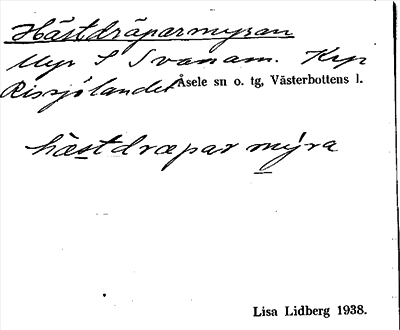 Hästdräparmyran
Myr S Svanam. Krp
Rissjölandet Åsele sn o. tg, Västerbottens l.
hæstdræpar mýra
Lisa Lidberg 1938.